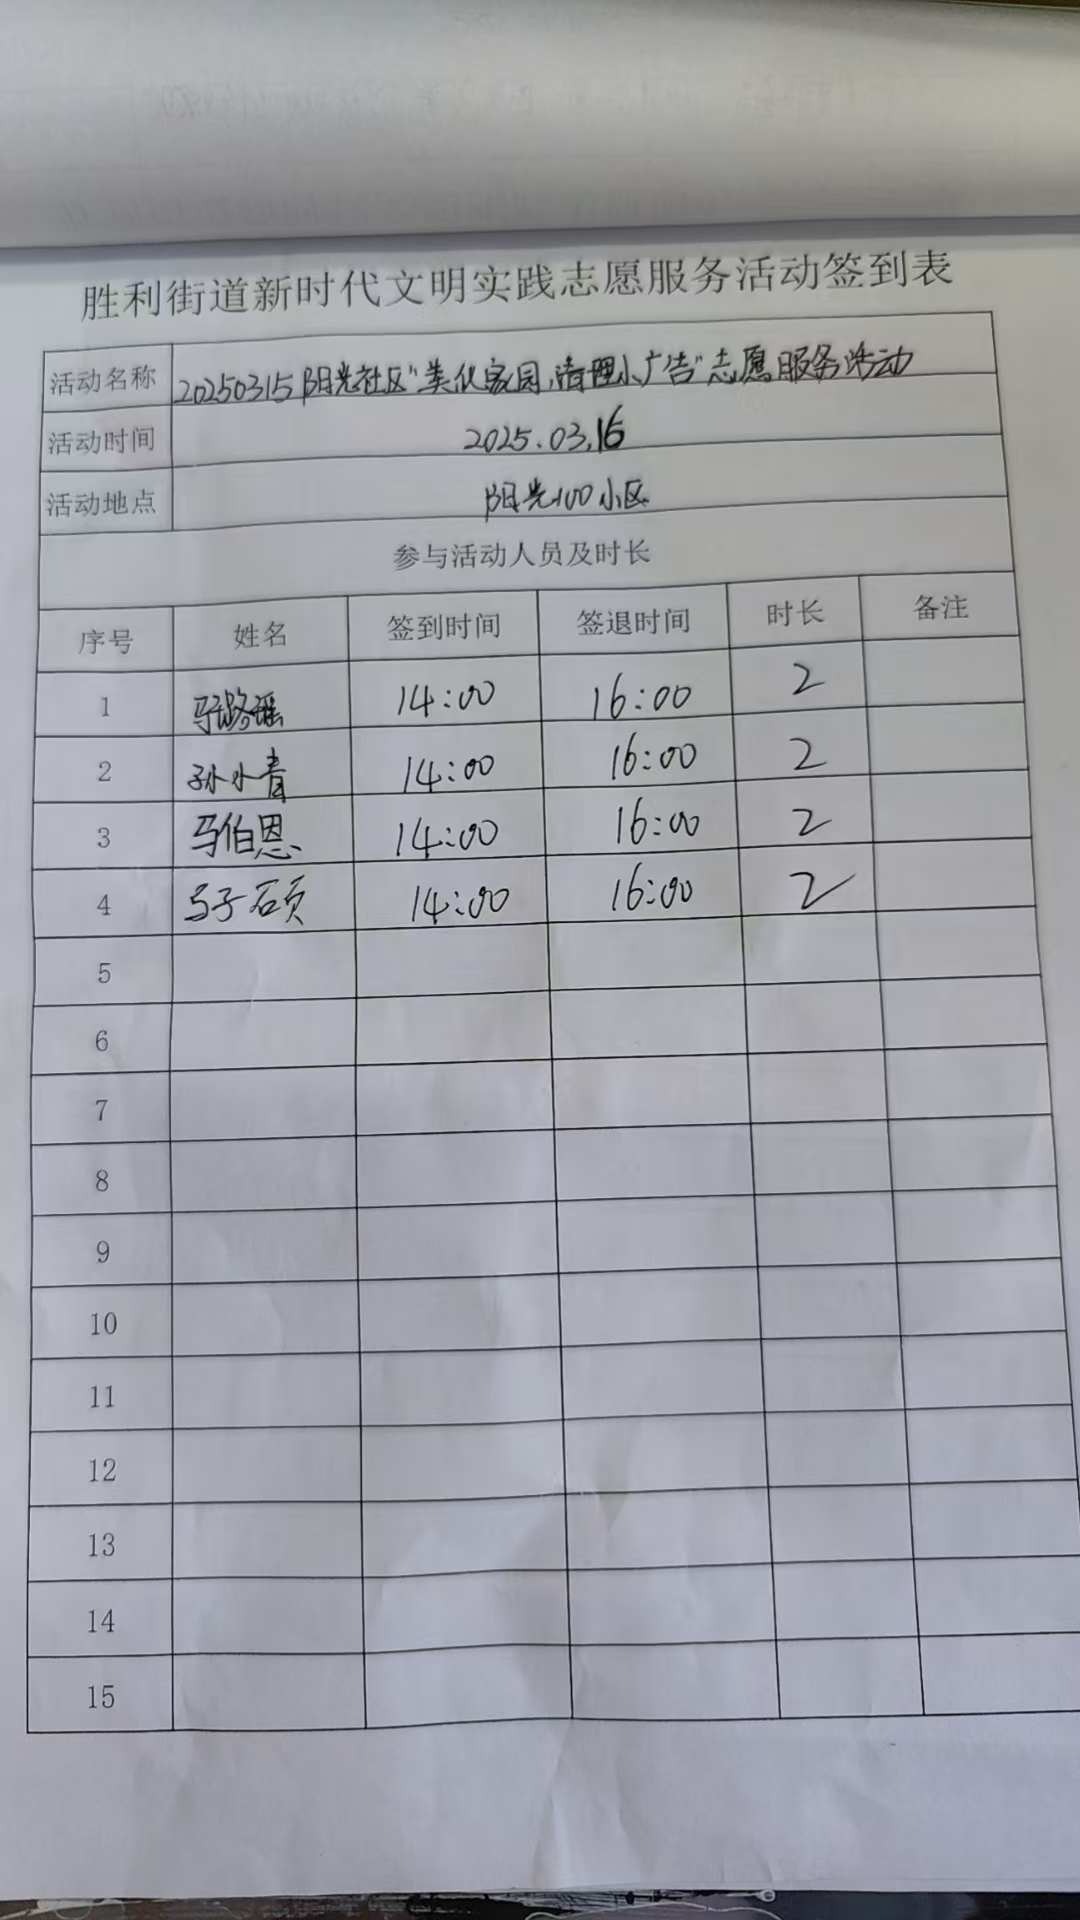 胜利街道新时代文明实践志愿服务活动签到表
活动名称 20250315阳光社区“美化家园,清理小广告”志愿服务活动
活动时间 2025.03.16
活动地点 阳光100小区
参与活动人员及时长
序号 姓名 签到时间 签退时间 时长 备注
1 马路瑶 14:00 16:00 2
2 孙小青 14:00 16:00 2
3 马伯恩 14:00 16:00 2
4 马子硕 14:00 16:00 2
5
6
7
8
9
10
11
12
13
14
15